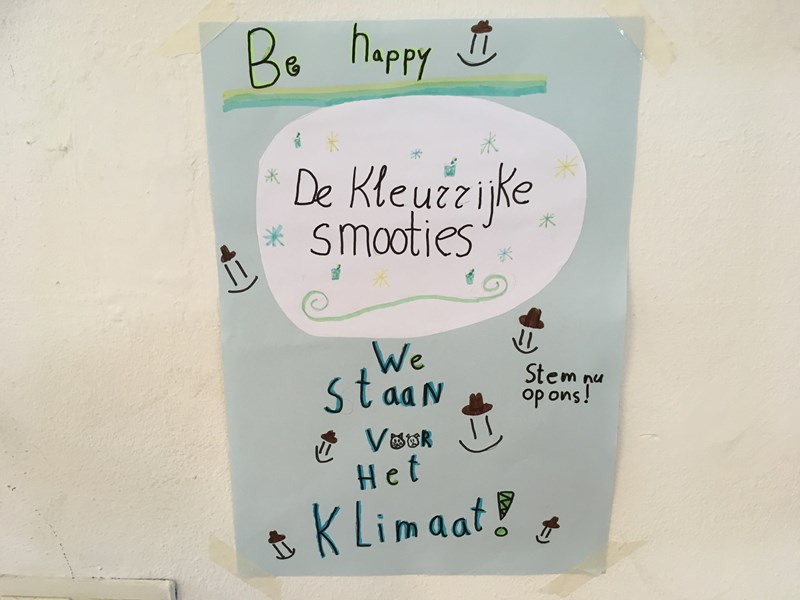 Be happy
De Kleurrijke
smooties
We
staan
voor
Het
Klimaat!
Stem nu
op ons!